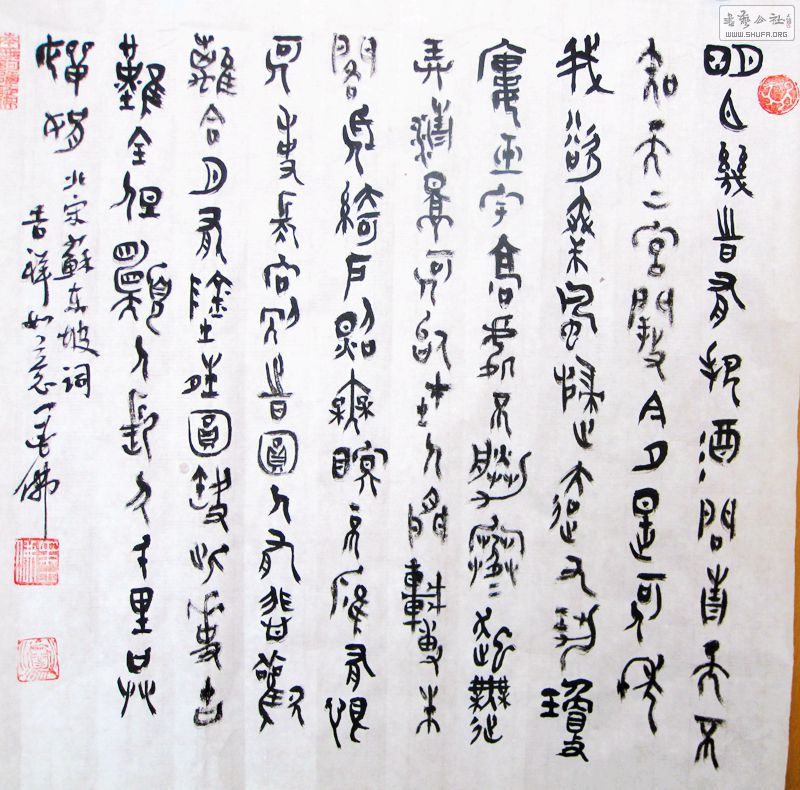 明月幾時有把酒問青天不
知天上宮闕今夕是何年
我欲乘風歸去又恐瓊
樓玉宇高處不勝寒起舞
弄清影何似在人間轉朱
閣低綺戶照無眠不應有恨
何事長向別時圓人有悲歡
離合月有陰晴圓缺此事古
難全但願人長久千里共
嬋娟 北宋蘇东坡词
吉祥如意
WWW.SHUFA.ORG